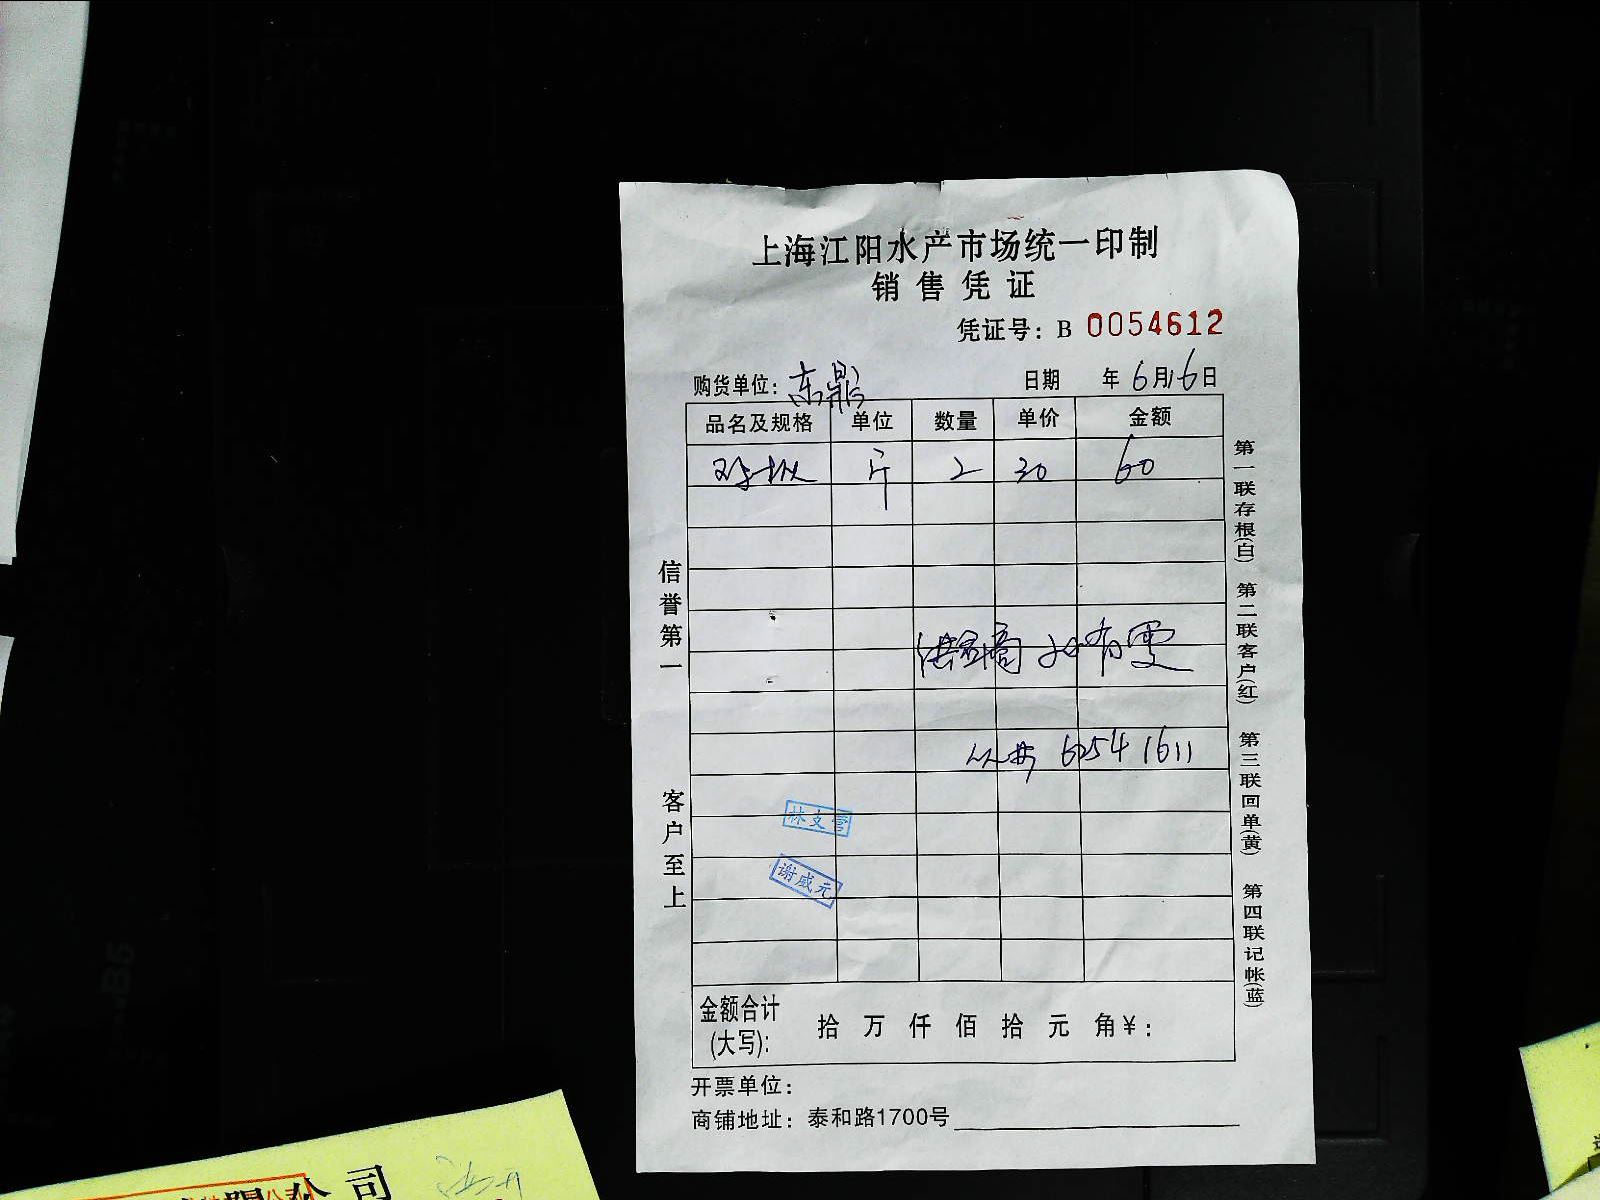 上海江阳水产市场统一印制
销售凭证
凭证号: B 0054612
购货单位: 东鼎 日期 年 6月16日
品名及规格 单位 数量 单价 金额
对虾 斤 2 30 60
6254 1611
林支营
谢成元
信誉第一
客户至上
第一联存根(白) 第二联客户(红) 第三联回单(黄) 第四联记帐(蓝)
金额合计
(大写): 拾 万 仟 佰 拾 元 角 ¥:
开票单位:
商铺地址: 泰和路1700号
限公司